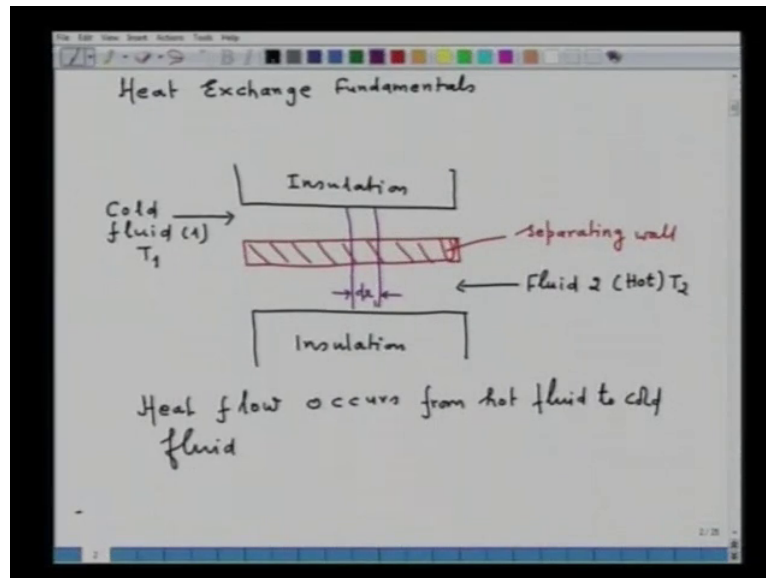 File Edit View Insert Actions Tools Help
Heat Exchange Fundamentals
Insulation
Cold
fluid (1)
T1
separating wall
Fluid 2 (Hot) T2
dx
Insulation
Heat flow occurs from hot fluid to cold
fluid
2/25
2